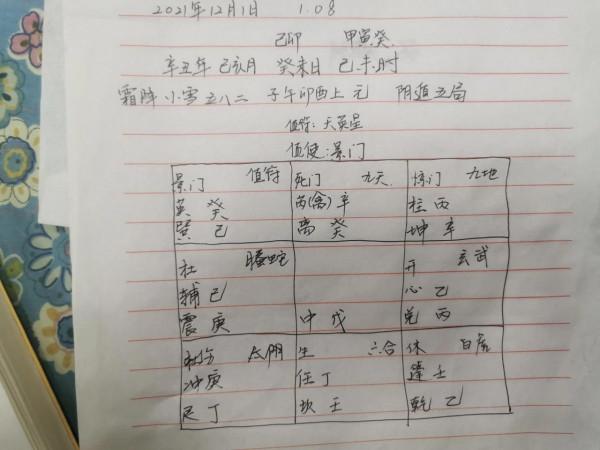 2021年12月1日 1.08
己卯 甲寅癸
辛丑年 己亥月 癸未日 己未时
霜降 小雪 五八二 子午卯酉上元 阴遁五局
值符:天英星
值使:景门
景门 值符 死门 九天 惊门 九地
英 癸 芮(禽)辛 柱 丙
巽 己 离 癸 坤 辛
杜 螣蛇 开 玄武
辅己 心 乙
震庚 中 戊 兑 丙
伤 太阴 生 六合 休 白虎
冲庚 任丁 蓬壬
艮丁 坎壬 乾乙